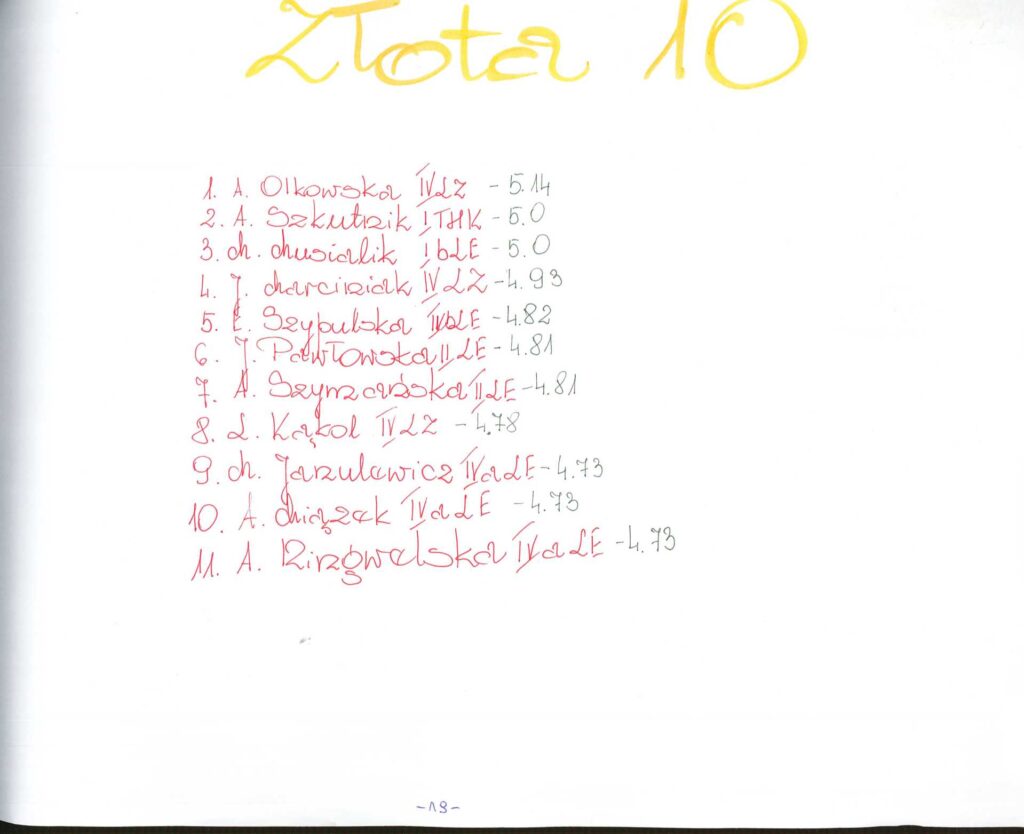 Złota 10
1. A. Olkowska IV LZ - 5.14
2. A. Szkutnik I THK - 5.0
3. M. Musialik I b LE - 5.0
4. J. Marciniak IV LZ - 4.93
5. E. Szybulska IV b LE - 4.82
6. J. Pawłowska II LE - 4.81
7. A. Szymańska II LE - 4.81
8. L. Kąkol IV LZ - 4.78
9. M. Janulewicz IV a LE - 4.73
10. A. Miązek IV a LE - 4.73
11. A. IV a LE - 4.73
- 19 -